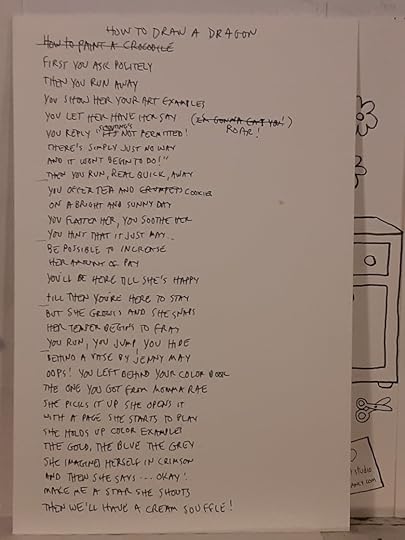 HOW TO DRAW A DRAGON
HOW TO PAINT A CROCODILE
FIRST YOU ASK POLITELY
THEN YOU RUN AWAY
YOU SHOW HER YOUR ART EXAMPLES
YOU LET HER HAVE HER SAY (I'M GONNA EAT YOU!)
ROAR!
YOU REPLY "IT'S NOT PERMITTED!
THERE'S SIMPLY JUST NO WAY
AND IT WON'T BEGIN TO DO!"
THEN YOU RUN, REAL QUICK, AWAY
YOU OFFER TEA AND CRUMPETS COOKIES
ON A BRIGHT AND SUNNY DAY
YOU FLATTER HER, YOU SOOTHE HER
YOU HINT THAT IT JUST MAY...
BE POSSIBLE TO INCREASE
HER AMOUNT OF PAY
YOU'LL BE HERE TILL SHE'S HAPPY
TILL THEN YOU'RE HERE TO STAY
BUT SHE GROWLS AND SHE SNAPS
HER TEMPER BEGINS TO FRAY
YOU RUN, YOU JUMP, YOU HIDE
BEHIND A VASE BY JENNY MAY
OOPS! YOU LEFT BEHIND YOUR COLOR BOOK
THE ONE YOU GOT FROM MOMMA RAE
SHE PICKS IT UP SHE OPENS IT
WITH A PAGE SHE STARTS TO PLAY
SHE HOLDS UP COLOR EXAMPLES
THE GOLD, THE BLUE THE GREY
SHE IMAGINES HERSELF IN CRIMSON
AND THEN SHE SAYS... OKAY!
MAKE ME A STAR SHE SHOUTS
THEN WE'LL HAVE A CREAM SOUFFLÉ!
studio